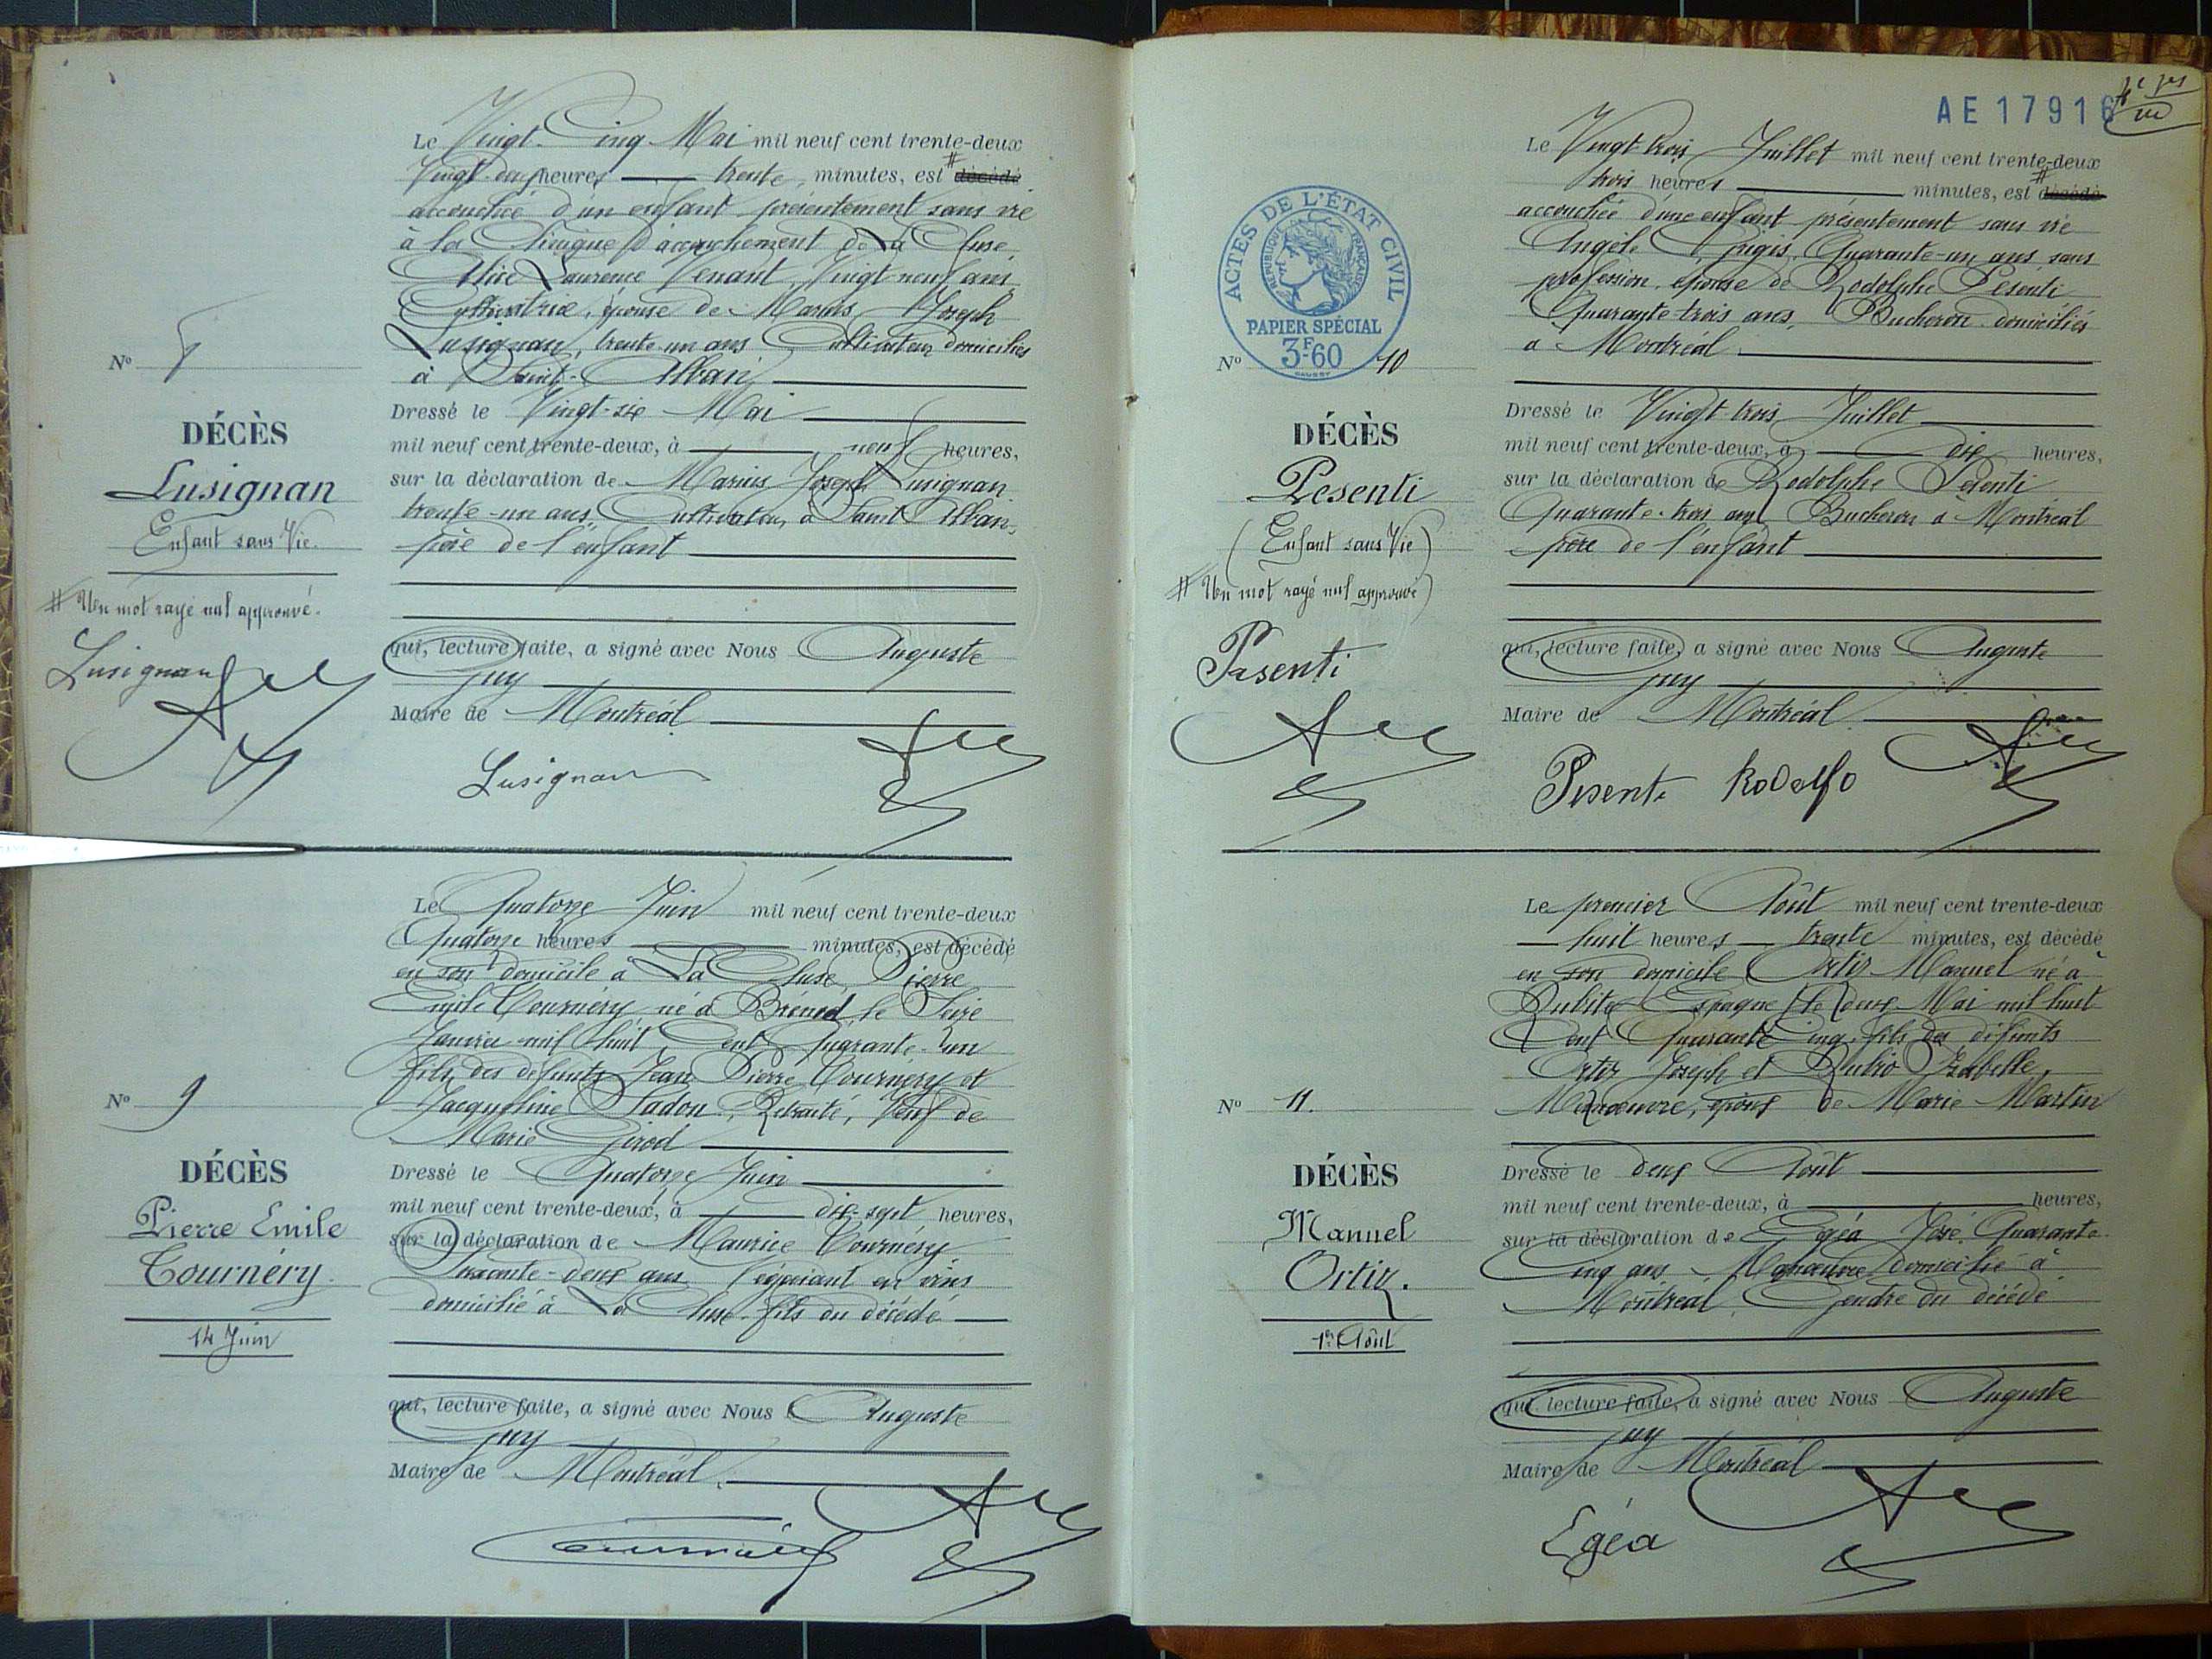 Le Vingt-Cinq Mai mil neuf cent trente-deux
Vingt-deux heures trente, minutes, est # décédé
accouchée d'un enfant présentement sans vie
à la Clinique d'accouchement de La Cluse,
Alice Laurence Venant, Vingt-neuf ans
Cultivatrice, épouse de Marius Joseph
Lusignan, trente un ans Cultivateur domiciliés
à Saint-Alban
Nº 8
DÉCÈS
Lusignan
Enfant sans Vie.
# Un mot rayé nul approuvé.
Lusignan
Dressé le Vingt-six Mai
mil neuf cent trente-deux, à neuf heures,
sur la déclaration de Marius Joseph Lusignan
trente-un ans, Cultivateur à Saint Alban,
père de l'enfant
qui, lecture faite, a signé avec Nous Auguste
Guy
Maire de Montréal
Lusignan
Le Quatorze Juin mil neuf cent trente-deux
Quatorze heures minutes, est décédé
en son domicile à La Cluse, Pierre
Emile Tournéry, né à Brénod, le Seize
Janvier mil huit Cent Quarante-un
fils des défunts Jean Pierre Tournéry et
Jacqueline Sadou, Retraité, Veuf de
Marie Girod
Nº 9
DÉCÈS
Pierre Emile
Tournéry.
14 Juin
Dressé le Quatorze Juin
mil neuf cent trente-deux, à dix-sept heures,
sur la déclaration de Maurice Tournéry
Soixante-deux ans Négociant en vins
domicilié à La Cluse, fils du décédé
qui, lecture faite, a signé avec Nous Auguste
Guy
Maire de Montréal.
AE 17916
Le Vingt-trois Juillet mil neuf cent trente-deux
trois heures minutes, est # décédé
accouchée d'une enfant présentement sans vie
Angèle Quarante-un ans sans
profession, épouse de Rodolphe Pésenti
Quarante-trois ans, Bucheron domiciliés
à Montréal.
ACTES DE L'ÉTAT CIVIL
RÉPUBLIQUE FRANÇAISE
PAPIER SPÉCIAL
3F60
Nº 10
DÉCÈS
Pesenti
(Enfant sans Vie)
# Un mot rayé nul approuvé)
Pesenti
Dressé le Vingt-trois Juillet
mil neuf cent trente-deux, à dix heures,
sur la déclaration de Rodolphe Pésenti
Quarante-trois ans Bucheron à Montréal
père de l'enfant
qui, lecture faite, a signé avec Nous Auguste
Guy
Maire de Montréal
Pesenti Rodolfo
Le premier Août mil neuf cent trente-deux
huit heures trente minutes, est décédé
en son domicile Ortiz Manuel né à
Espagne, le deux Mai mil huit
Cent Quarante Cinq, fils des défunts
Ortiz Joseph et Rubio Izabelle,
Manoeuvre, époux de Marie Martin
Nº 11.
DÉCÈS
Manuel
Ortiz.
1er Août
Dressé le deux Août
mil neuf cent trente-deux, à heures,
sur la déclaration de Egéa José, Quarante
Cinq ans Manœuvre domicilié à
Montréal, Gendre du décédé
qui lecture faite, a signé avec Nous Auguste
Guy
Maire de Montréal
Egéa